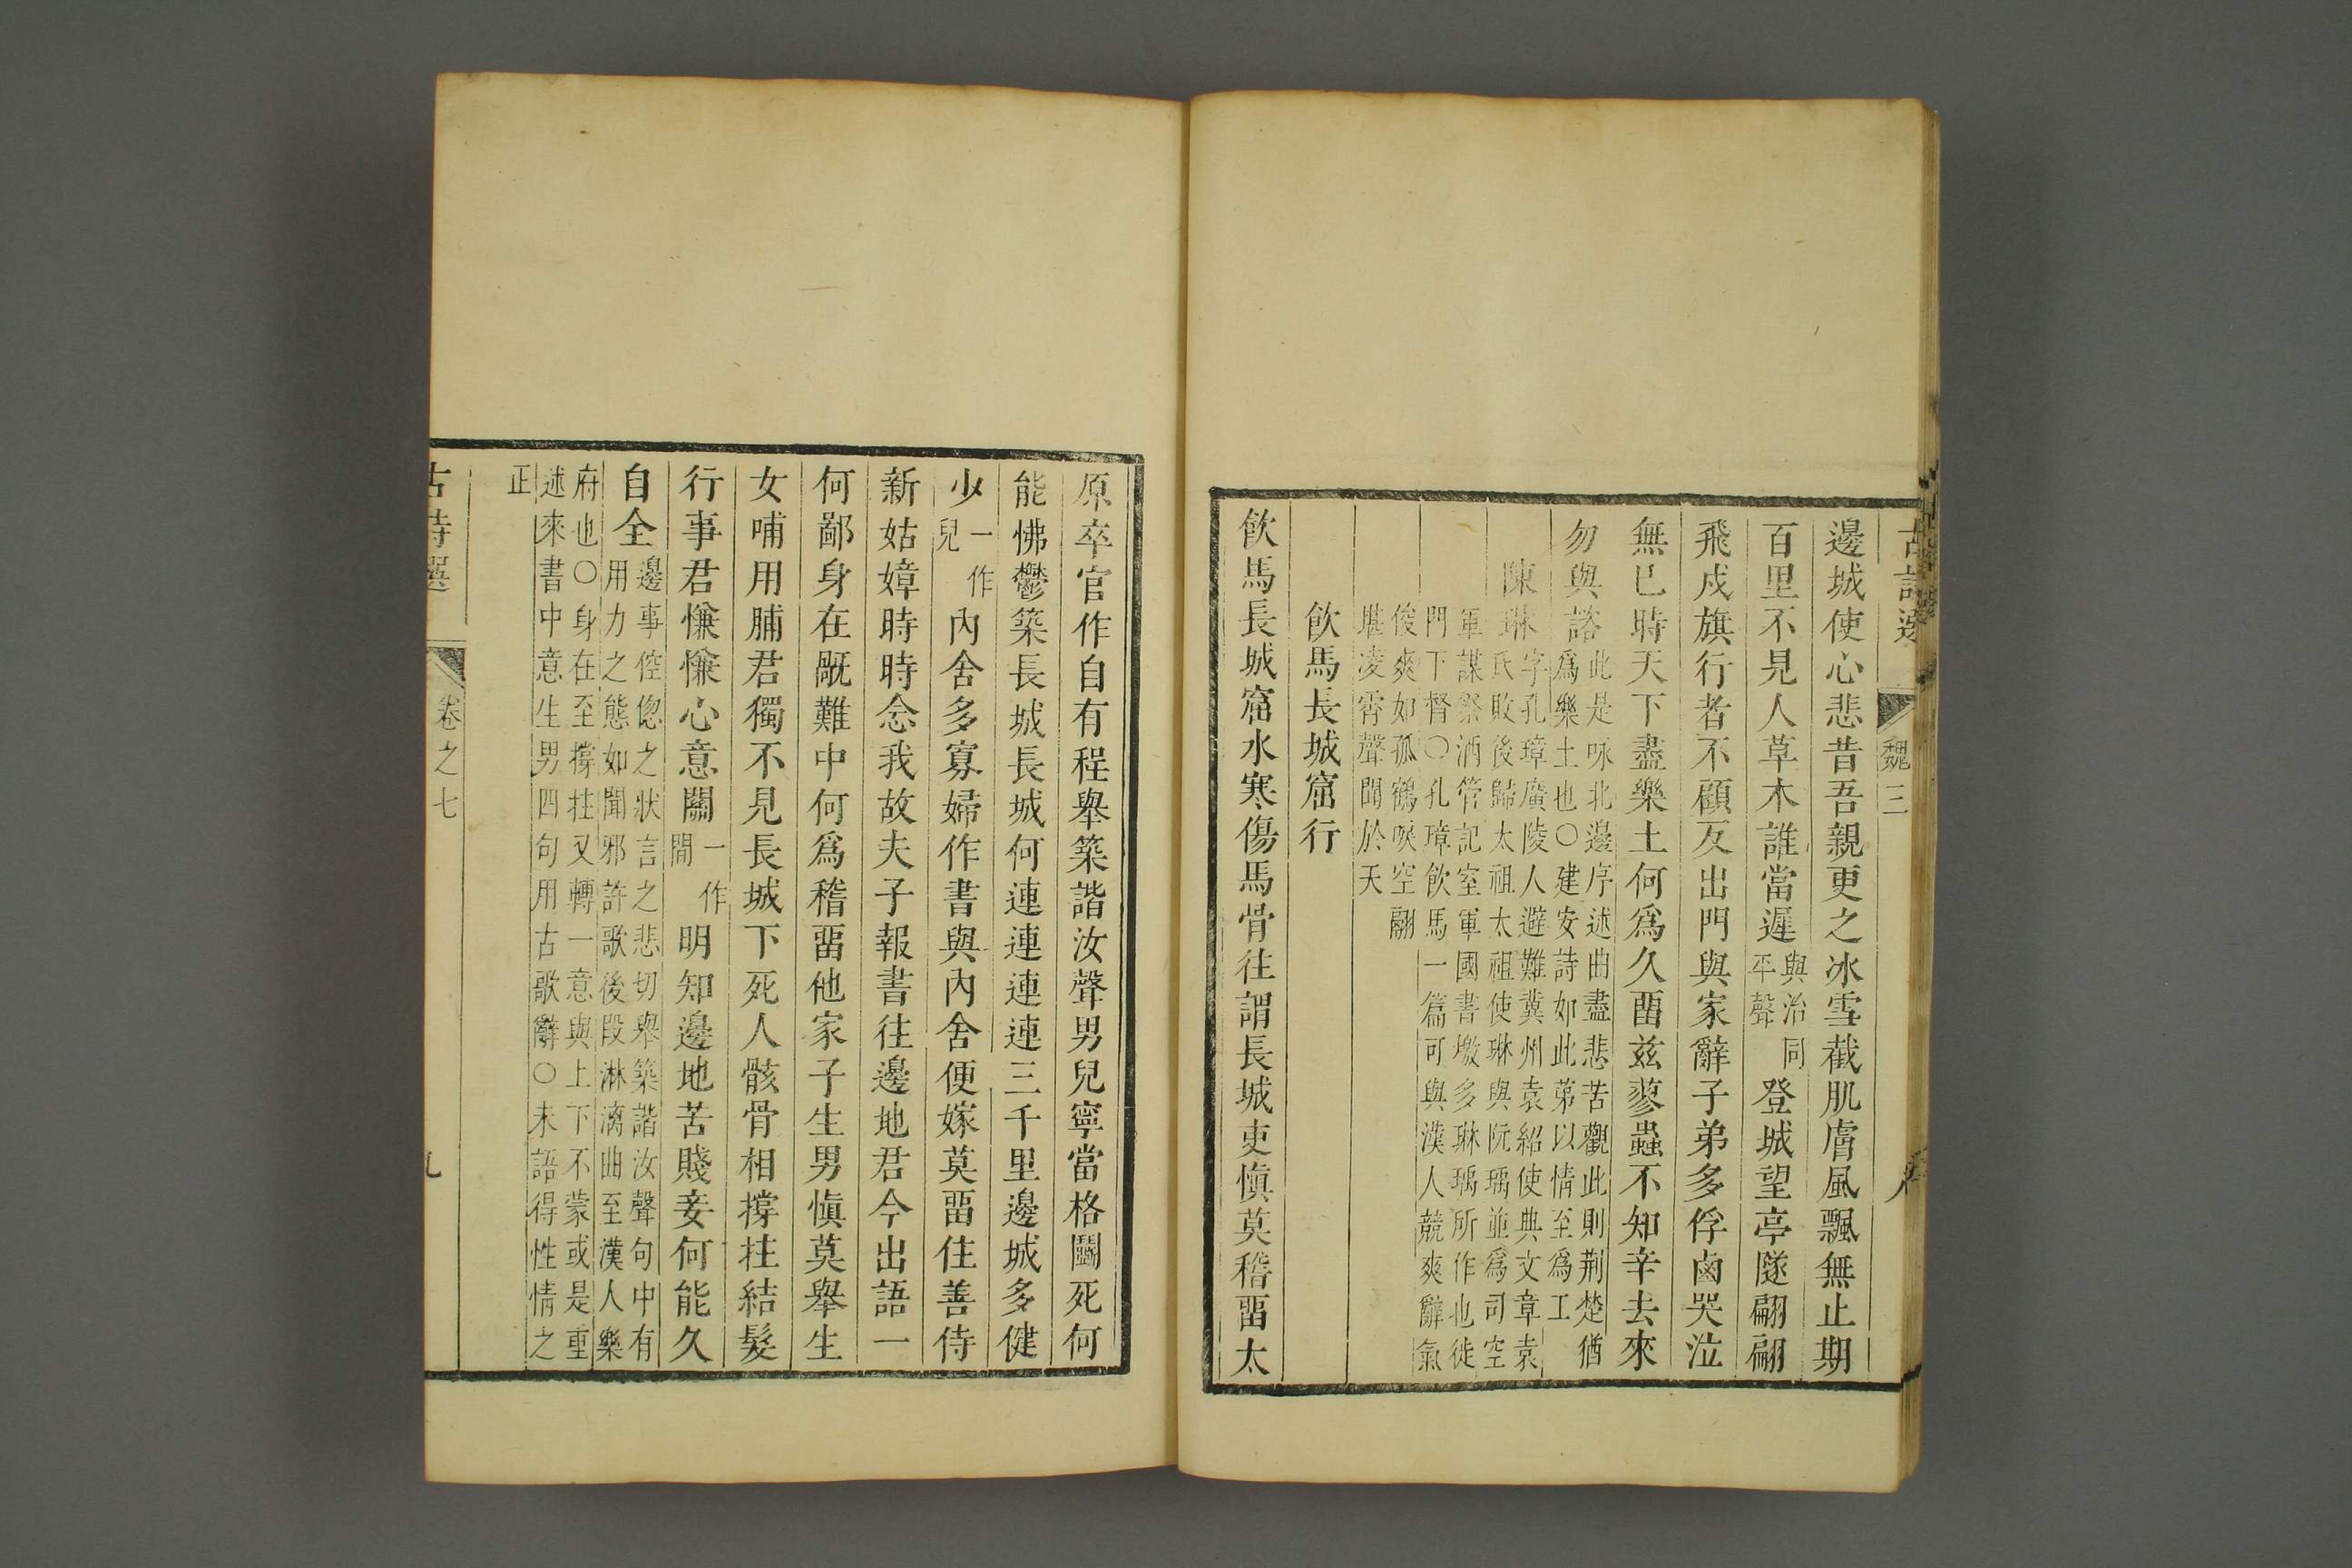 古詩選 魏三 八
邊城使心悲昔吾親更之冰雪截肌膚風飄無止期
百里不見人草木誰當遲與治同平聲登城望亭隧翩翩
飛戍旗行者不顧反出門與家辭子弟多俘鹵哭泣
無已時天下盡樂土何爲久畱茲蓼蟲不知辛去來
勿與諮此是咏北邊序述曲盡悲苦觀此則荆楚猶
爲樂土也〇建安詩如此弟以情至爲工
陳琳字孔璋廣陵人避難冀州袁紹使典文章袁
氏敗後歸太祖太祖使琳與阮瑀並爲司空
軍謀祭酒管記室軍國書檄多琳瑀所作也徙
門下督〇孔璋飲馬一篇可與漢人競爽辭氣
俊爽如孤鶴唳空翮
堪凌霄聲聞於天
飲馬長城窟行
飲馬長城窟水寒傷馬骨往謂長城吏愼莫稽畱太
原卒官作自有程舉築諧汝聲男兒寧當格鬭死何
能怫鬱築長城長城何連連連連三千里邊城多健
少一作兒內舍多寡婦作書與內舍便嫁莫畱住善侍
新姑嫜時時念我故夫子報書往邊地君今出語一
何鄙身在旤難中何爲稽畱他家子生男愼莫舉生
女哺用脯君獨不見長城下死人骸骨相撐拄結髮
行事君慊慊心意關一作間明知邊地苦賤妾何能久
自全邊事倥傯之狀言之悲切舉築諧汝聲句中有
用力之態如聞邪許歌後段淋漓曲至漢人樂
府也〇身在至撐拄又轉一意與上下不蒙或是重
述來書中意生男四句用古歌辭〇未語得性情之
正
古詩選 卷之七 九